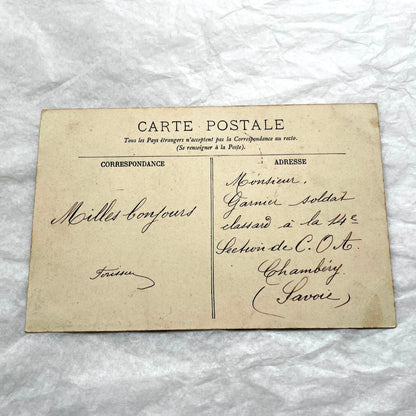 CARTE POSTALE
Tous les Pays étrangers n'acceptent pas la Correspondance au recto.
(Se renseigner à la Poste).
CORRESPONDANCE
Milles bonjours
ADRESSE
Monsieur,
Garnier soldat
classard à la 14e
Section de C.O.A.
Chambéry
(Savoie)